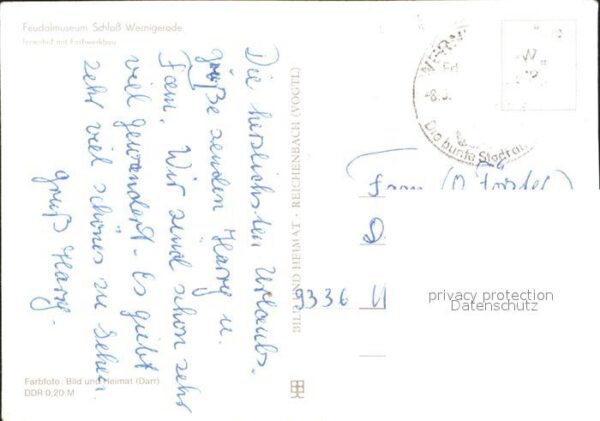 Feudalmuseum Schloß Wernigerode
Innenhof mit Fachwerkbau
Die herzlichsten Urlaubs-
grüße senden Harry u.
Fam. Wir sind schon sehr
viel gewandert - Es giebt
sehr viel schönes zu sehen.
gruß Harry.
Farbfoto: Bild und Heimat (Darr)
DDR 0,20 M
BILD UND HEIMAT · REICHENBACH (VOGTL)
WERNI
-8.
Die bunte Stadt a
Fa
9336 U
privacy protection
Datenschutz